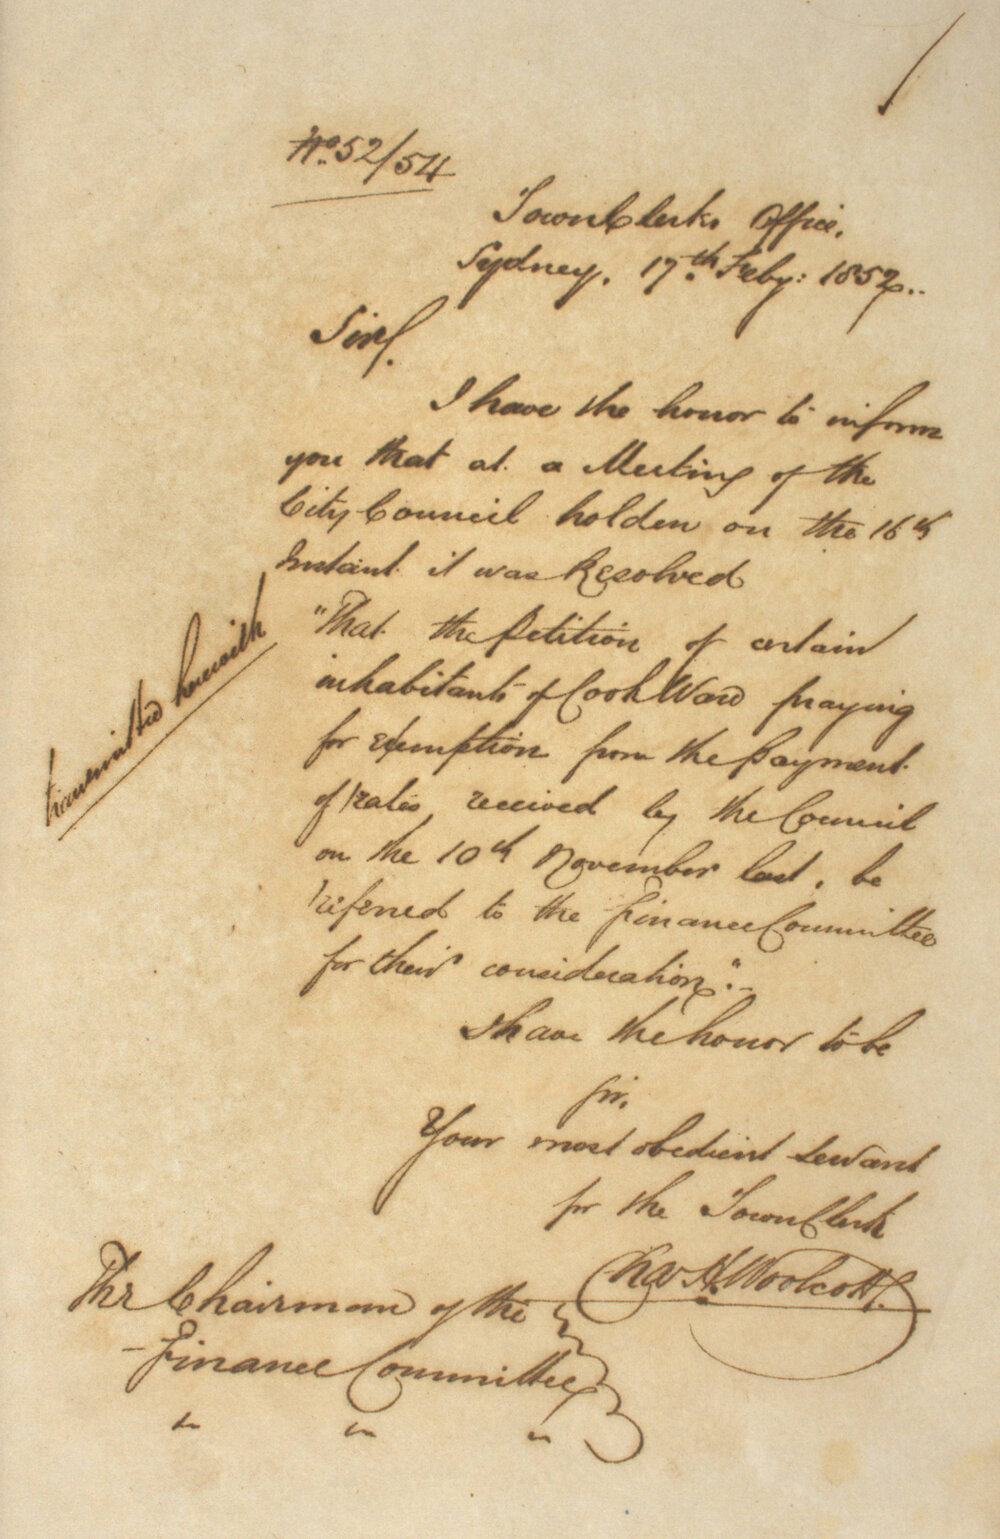 No. 52/54
Town Clerks Office,
Sydney, 17th Feby: 1852..
Sir,
I have the honor to inform
you that at a Meeting of the
City Council holden on the 16th
Instant it was Resolved
"That the Petition of certain
inhabitants of Cook Ward praying
for exemption from the Payment
of Rates received by the Council
on the 10th November last, be
referred to the Finance Committee
for their consideration."-
transmitted herewith
I have the honor to be
Sir,
Your most obedient Servant
for the Town Clerk
Chas H. Woolcott.
The Chairman of the
Finance Committee
" " "